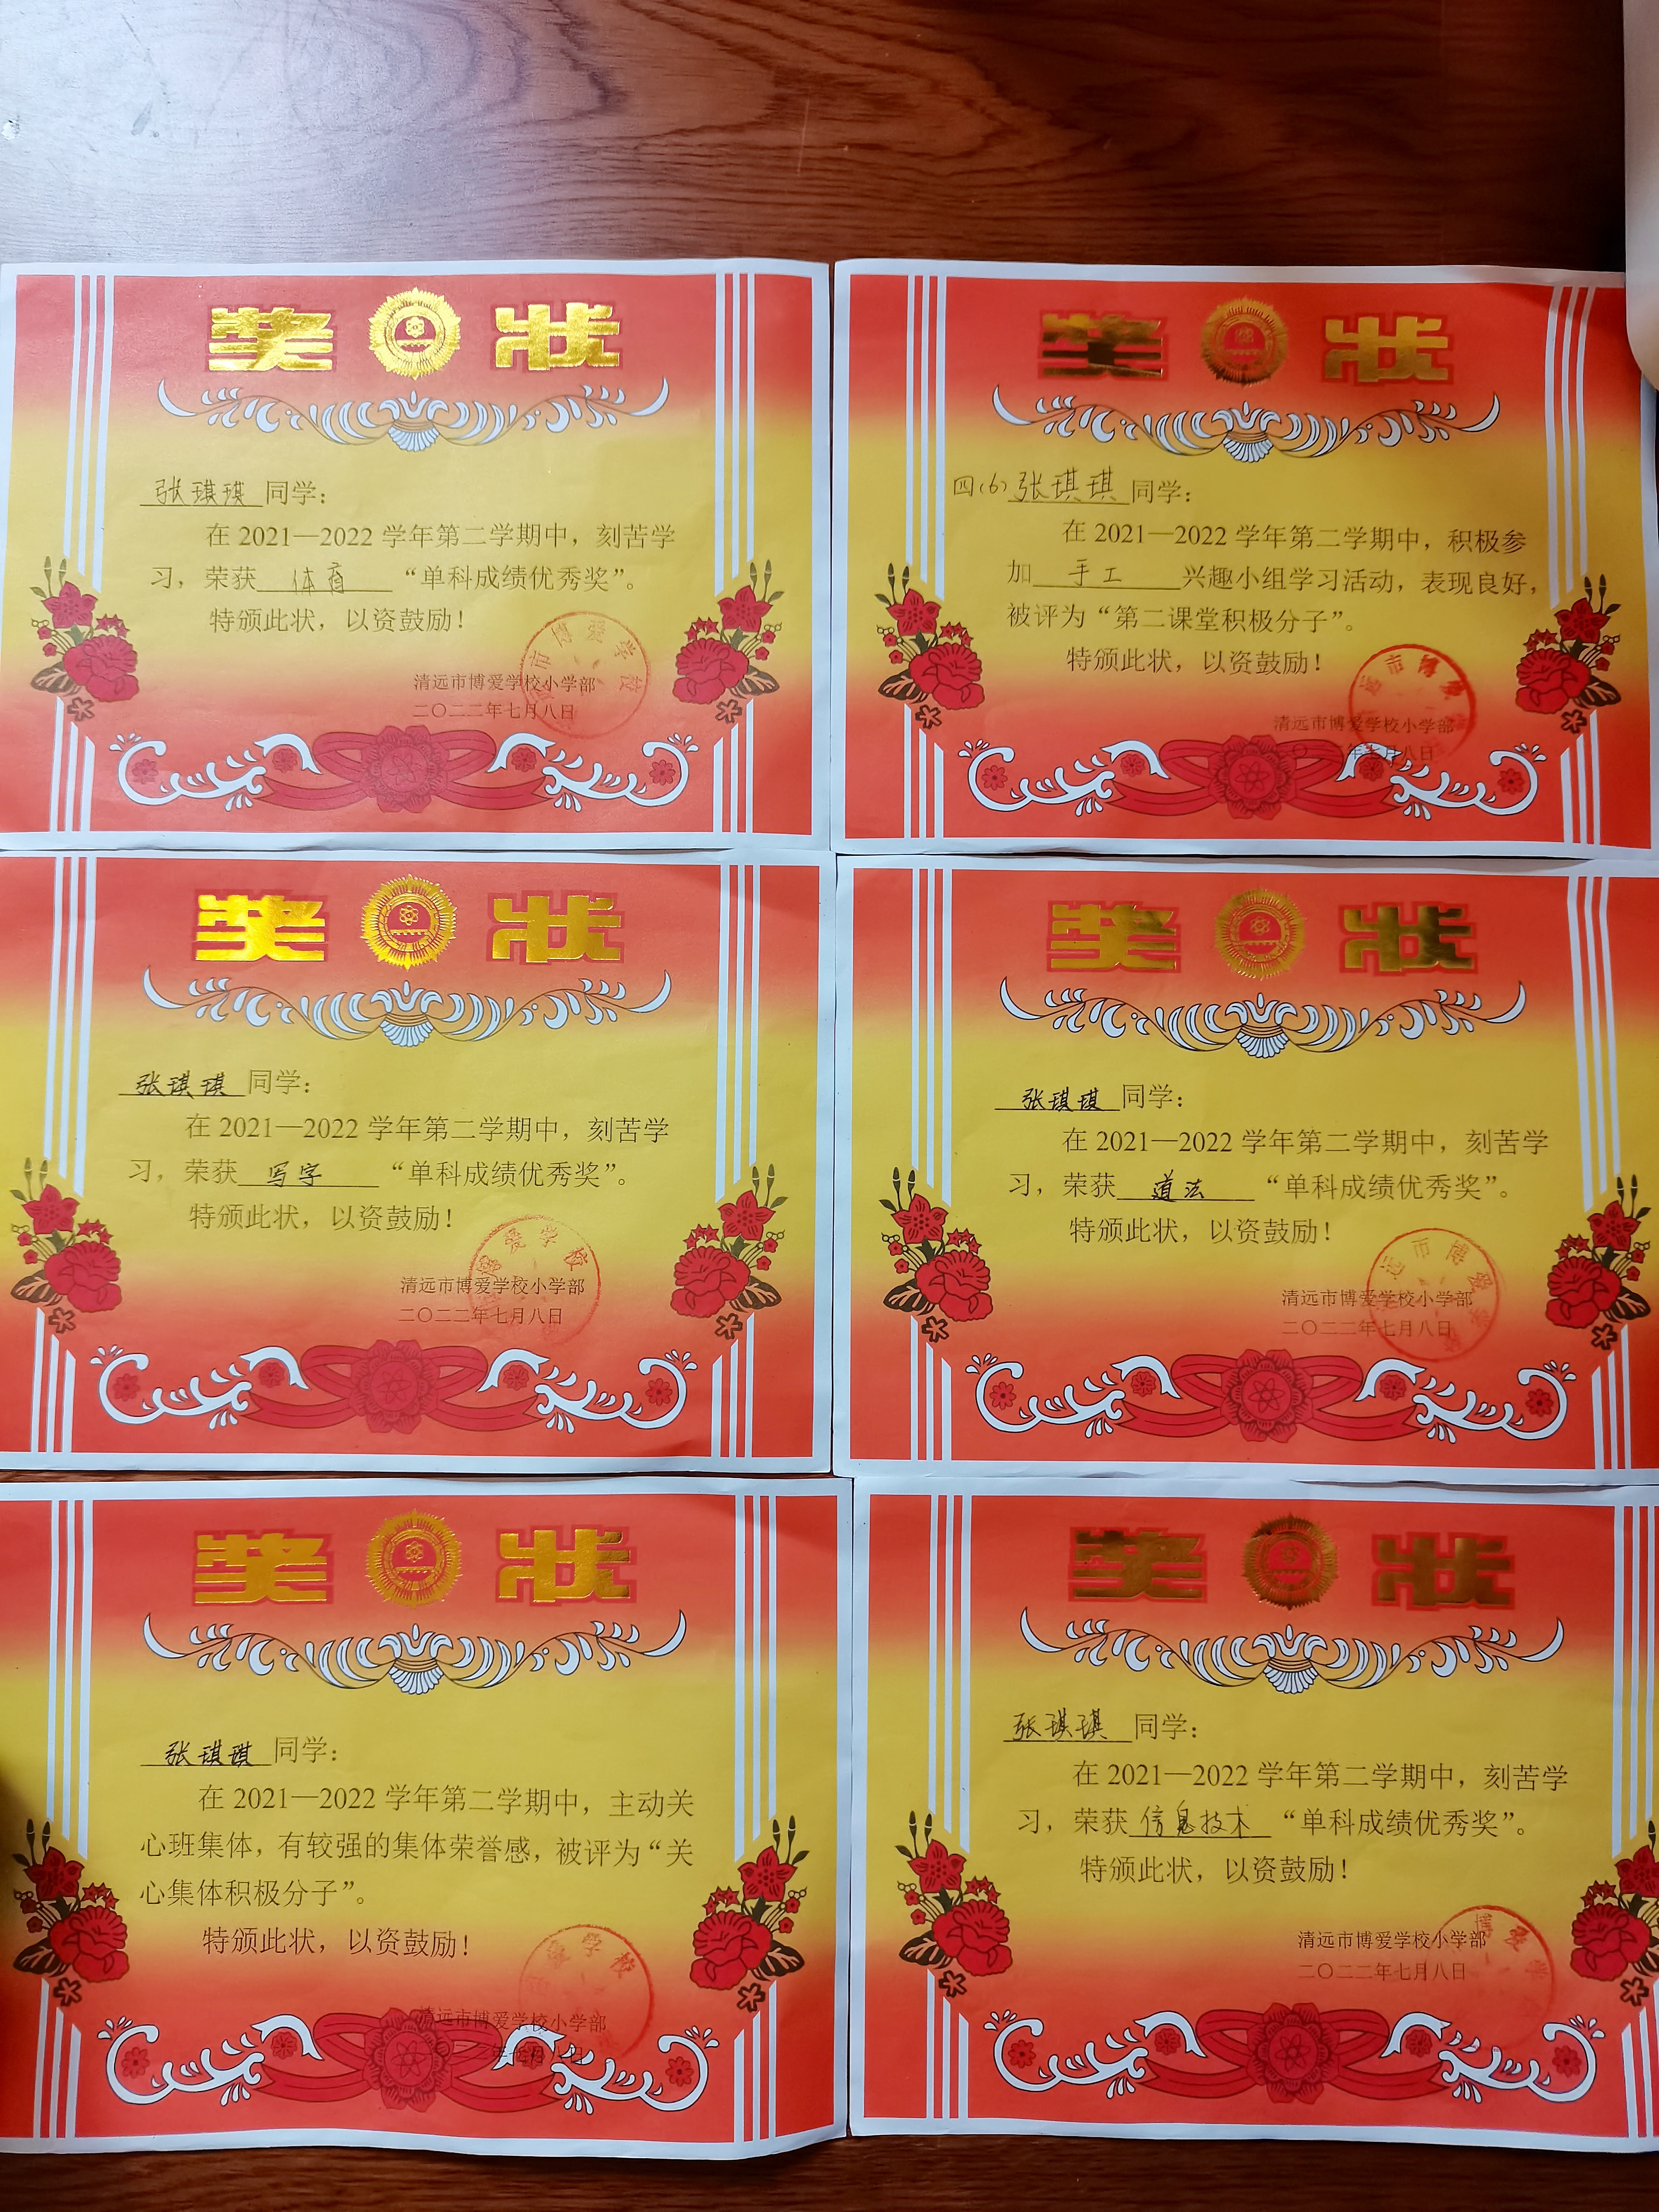 奖状
张琪琪同学：
在2021—2022学年第二学期中，刻苦学
习，荣获体育“单科成绩优秀奖”。
特颁此状，以资鼓励！
清远市博爱学校小学部
二〇二二年七月八日
市博爱学校
奖状
四(6)张琪琪同学：
在2021—2022学年第二学期中，积极参
加手工兴趣小组学习活动，表现良好，
被评为“第二课堂积极分子”。
特颁此状，以资鼓励！
远市博爱
清远市博爱学校小学部
年七月八日
奖状
张琪琪同学：
在2021—2022学年第二学期中，刻苦学
习，荣获写字“单科成绩优秀奖”。
特颁此状，以资鼓励！
博爱学校
清远市博爱学校小学部
二〇二二年七月八日
奖状
张琪琪同学：
在2021—2022学年第二学期中，刻苦学
习，荣获道法“单科成绩优秀奖”。
特颁此状，以资鼓励！
远市博爱学校
清远市博爱学校小学部
二〇二二年七月八日
奖状
张琪琪同学：
在2021—2022学年第二学期中，主动关
心班集体，有较强的集体荣誉感，被评为“关
心集体积极分子”。
特颁此状，以资鼓励！
学校
清远市博爱学校小学部
年七月八日
奖状
张琪琪同学：
在2021—2022学年第二学期中，刻苦学
习，荣获信息技术“单科成绩优秀奖”。
特颁此状，以资鼓励！
博爱学
清远市博爱学校小学部
二〇二二年七月八日